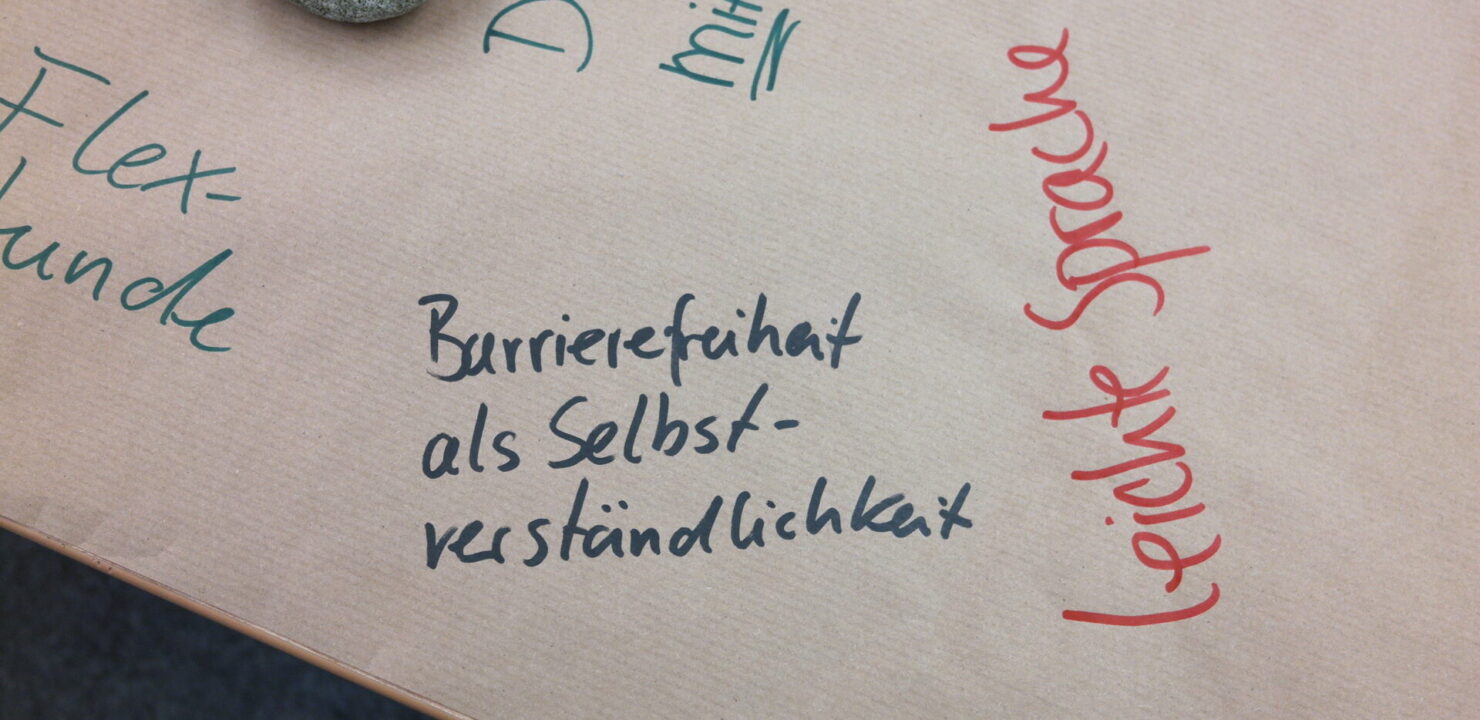 Flex-
D
mit
Barrierefreiheit
als Selbst-
verständlichkeit
Leichte Sprache